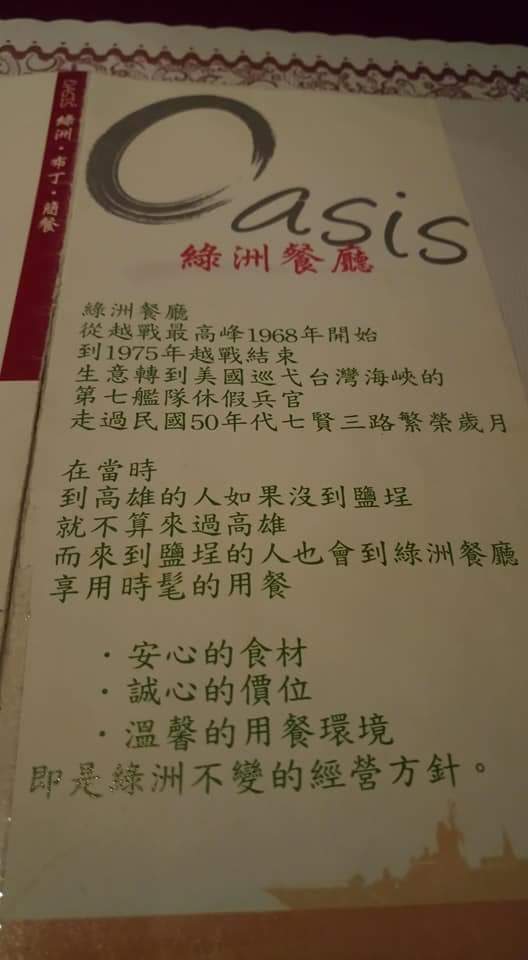 OASIS 綠洲・布丁・簡餐
Oasis
綠洲餐廳
綠洲餐廳
從越戰最高峰1968年開始
到1975年越戰結束
生意轉到美國巡弋台灣海峽的
第七艦隊休假兵官
走過民國50年代七賢三路繁榮歲月
在當時
到高雄的人如果沒到鹽埕
就不算來過高雄
而來到鹽埕的人也會到綠洲餐廳
享用時髦的用餐
・安心的食材
・誠心的價位
・溫馨的用餐環境
即是綠洲不變的經營方針。